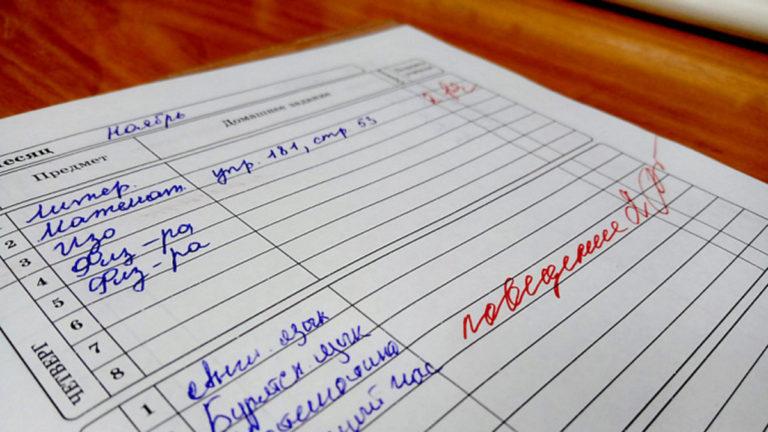 месяц Ноябрь
Предмет Домашнее задание
Литер.
2 Математ. упр. 181, стр 53
3 Изо
4 Физ-ра
5 Физ-ра
6
7
8
ЧЕТВЕРГ
поведение 2
1 Англ. язык
Бурятск. язык
час